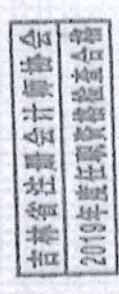 吉林省注册会计师协会
2019年度任职资格检查合格